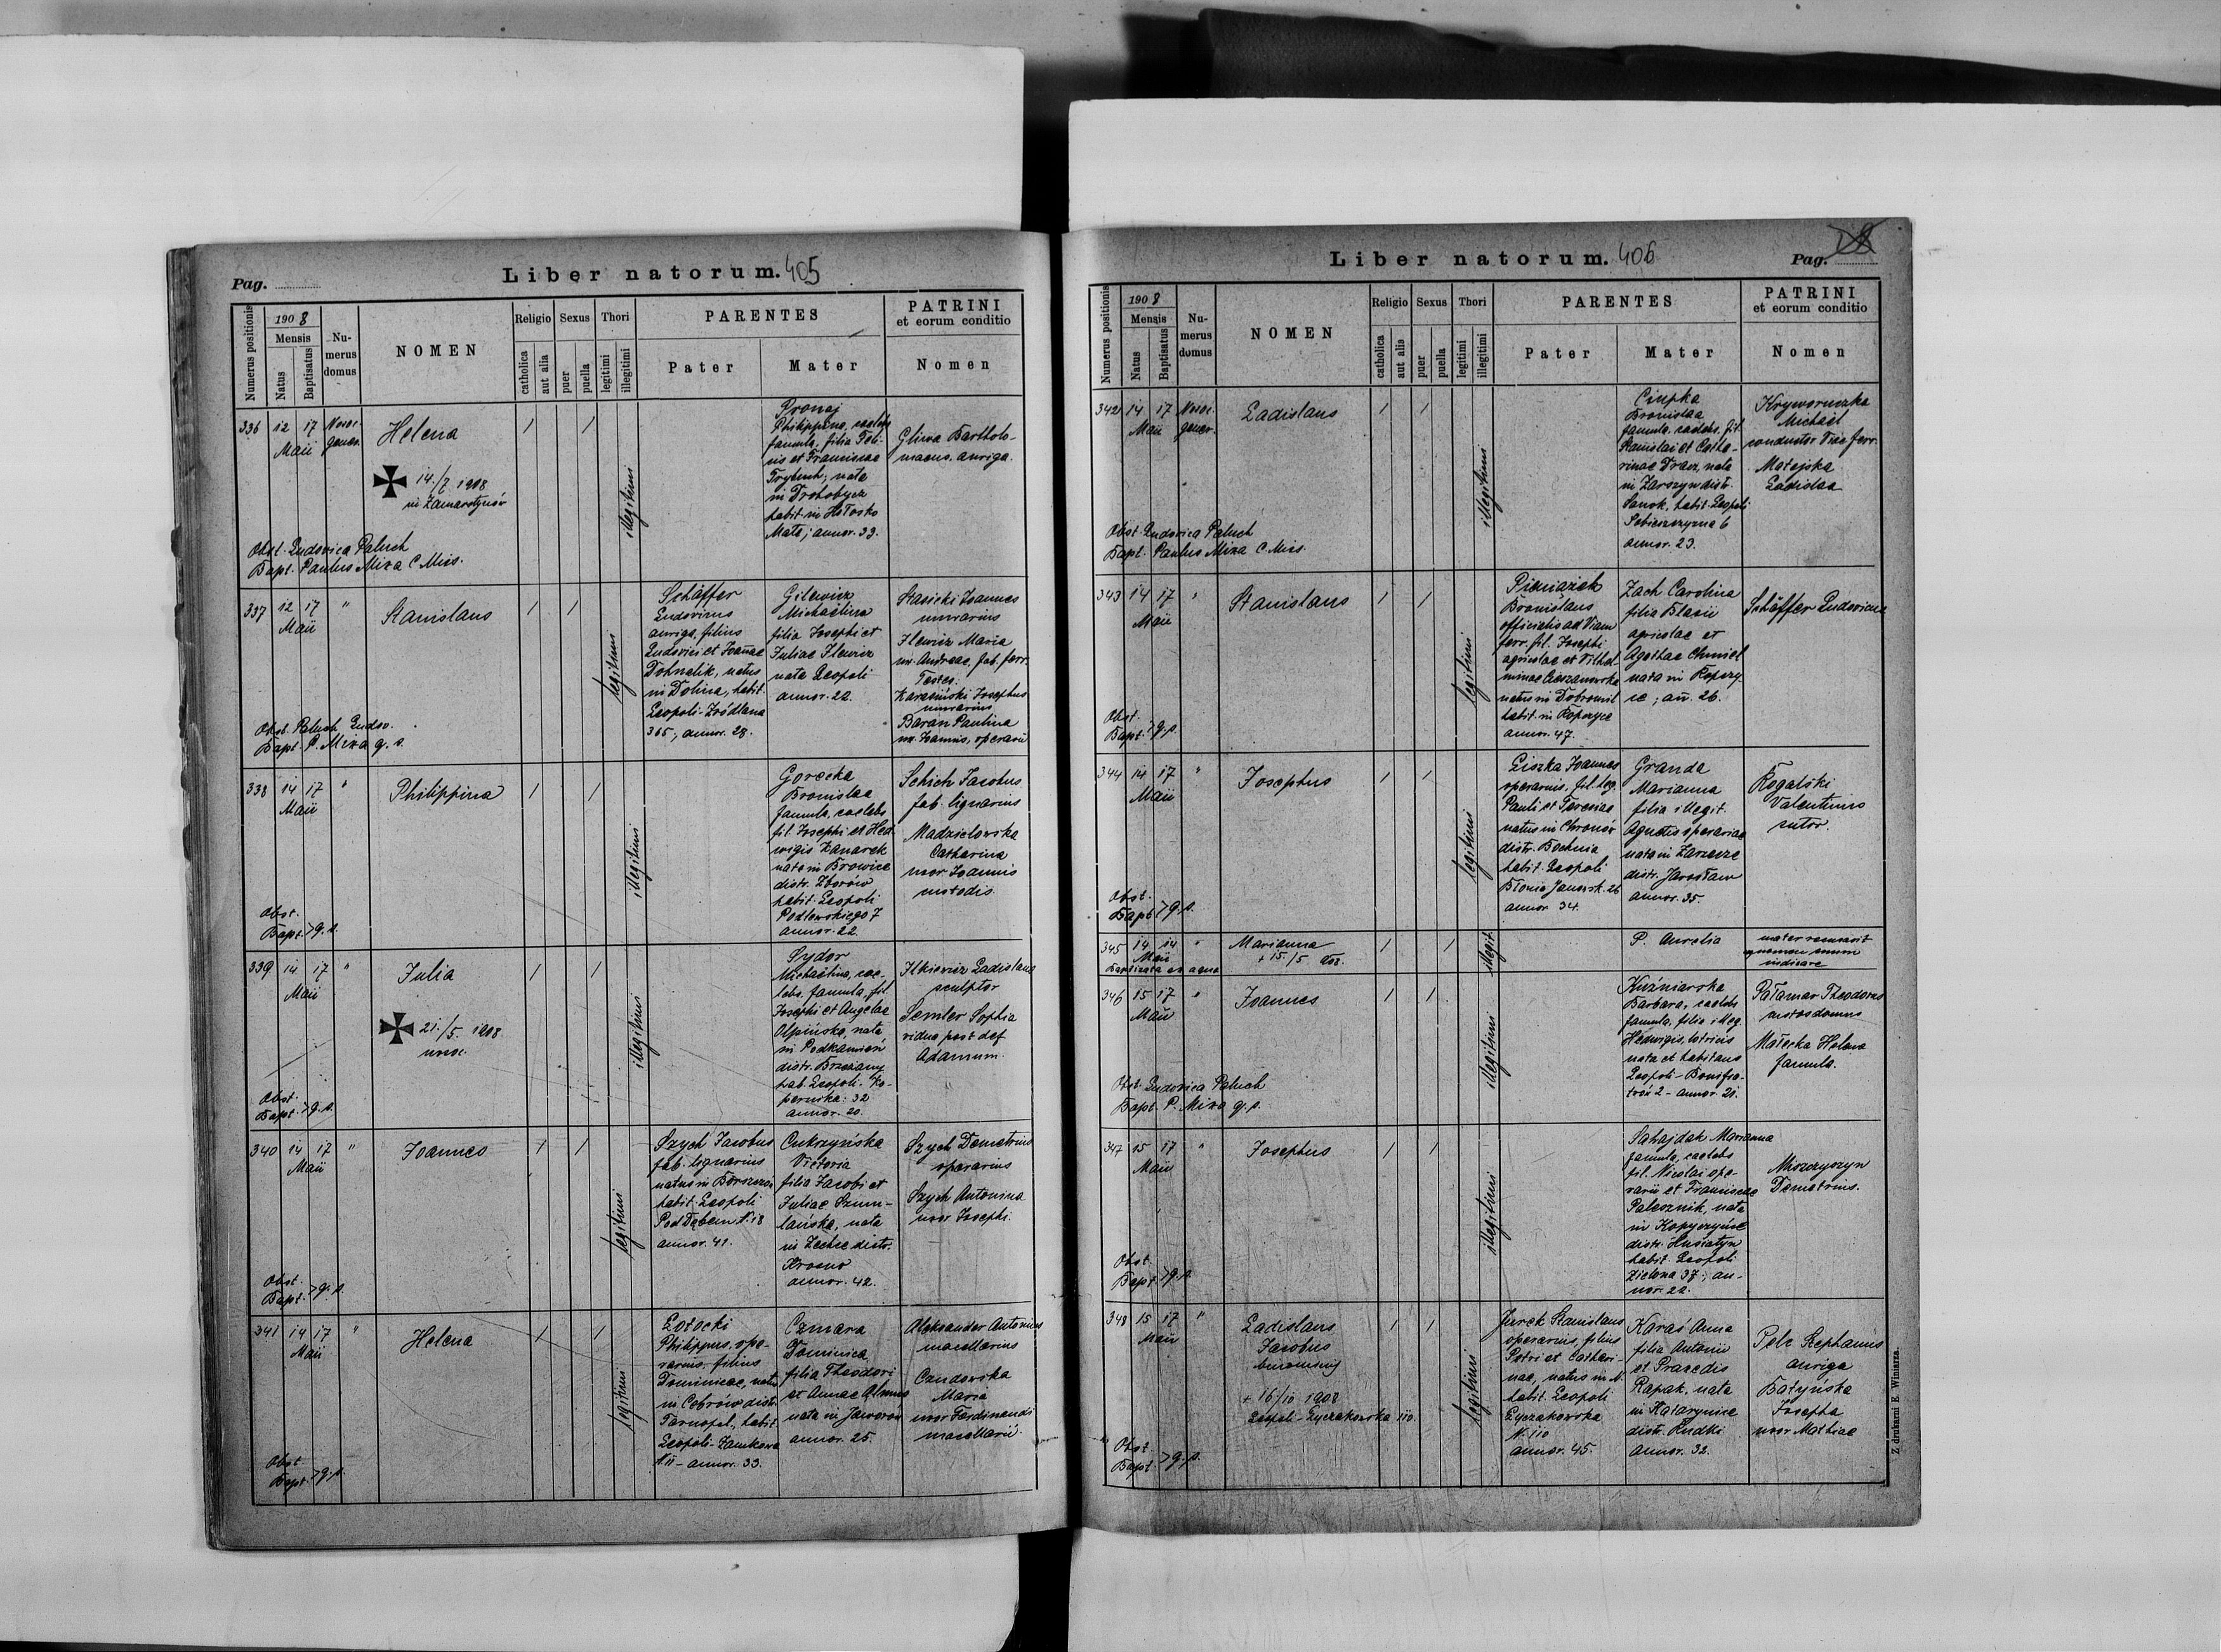 Pag.
Liber natorum. 405
Numerus positionis
1908
Mensis
Natus
Baptisatus
Nu-
merus
domus
NOMEN
Religio
catholica
aut alia
Sexus
puer
puella
Thori
legitimi
illegitimi
PARENTES
Pater
Mater
PATRINI
et eorum conditio
Nomen
336
12 17
Maii
Helena
14./7 1908
in Zamarstynów
illegitimi
Pronaj
Philippina, caelebs
famula, filia Feli-
cis et Franciscae
nata
in Drohobycz
habit. in Hołosko
Małe; annor. 33.
Gliwa Bartholo-
maeus. auriga.
Obst. Ludovica Paluch
Bapt. Paulus Miza C. Miss.
337
12 17
Maii
"
Stanislaus
legitimi
Schäffer
Ludovicus
auriga, filius
Ludovici et Joannae
Dohnalik, natus
in Dolina, habit.
Leopoli-Źródlana
365; annor. 28.
Gilewicz
Michaëlina
filia Josephi et
Juliae Ilewicz
nata Leopoli
annor. 22.
Stasicki Joannes
murarius
Ilewicz Maria
ux. Andreae, fab. ferr.
Testes:
Karasiński Josephus
murarius
Baran Paulina
ux. Joannis, operarii
Obst. Paluch Ludov.
Bapt. P. Miza q. s.
338
14 17
Maii
"
Philippina
illegitimi
Gorecka
Bronislaa
famula, caelebs
fil. Josephi et Hed-
wigis Kanarek
nata in
distr. Zborów
habit. Leopoli
Podlewskiego 7
annor. 22.
Schich Jacobus
fab. lignarius
Madzielowska
Catharina
uxor Joannis
custodis
Obst.
Bapt. > q. s.
339
14 17
Maii
"
Julia
21./5. 1908
illegitimi
Sydor
Michaëlina, cae-
lebs. famula, fil.
Josephi et Angelae
Olpińska, nata
in Podkamień
distr. Brzeżany
hab. Leopoli. Ko-
pernika: 32
annor. 20.
Ilkiewicz Ladislaus
sculptor
Semler Sophia
vidua post def.
Adamum.
Obst.
Bapt. > q. s.
340
14 17
Maii
"
Joannes
legitimi
Szych Jacobus
fab. lignarius
natus in
habit. Leopoli
Pod Dębem N. 18
annor. 41.
Cukrzyńska
Victoria
filia Jacobi et
Juliae Szum-
lańska, nata
in distr.
Krosno
annor. 42.
Szych Demetrius
operarius
Szych Antonina
uxor Josephi.
Obst.
Bapt. > q. s.
341
14 17
Maii
"
Helena
legitimi
Łotocki
Philippus, ope-
rarius, filius
Dominicae, natus
in Cebrów distr.
Tarnopol, habit.
Leopoli-Zamkowa
N. 11 - annor. 33.
Czmara
Dominica,
filia Theodori
et Annae
nata in Jaworów
annor. 25.
Aleksander Antonius
macellarius
Czudowska
Maria
uxor Ferdinandi
macellarii
Obst.
Bapt. > q. s.
Liber natorum. 406
Pag.
Numerus positionis
1908
Mensis
Natus
Baptisatus
Nu-
merus
domus
NOMEN
Religio
catholica
aut alia
Sexus
puer
puella
Thori
legitimi
illegitimi
PARENTES
Pater
Mater
PATRINI
et eorum conditio
Nomen
342
14 17
Maii
Ladislaus
illegitimi
Ciupka
Bronislaa
famula, caelebs. fil.
Stanislai et Catha-
rinae Dracz, nata
in Zarszyn distr.
Sanok, habit. Leopoli
Sobieszczyzna 6
annor. 23.
Kryworuczka
Michaël
conductor Viae ferr.
Matejska
Ladislaa
Obst. Ludovica Paluch
Bapt. Paulus Miza C. Miss.
343
14 17
Maii
"
Stanislaus
legitimi
Pieniążek
Bronislaus
officialis ad Viam
ferr. fil. Josephi
agricolae et Vilhel-
minae Cieszanowska
natus in Dobromil
habit. in Kopczyce
annor. 47.
Zach Carolina
filia Blasii
agricolae et
Agathae Chmiel
nata in Kopczy-
ce; an. 26.
Schäffer Ludovicus
Obst.
Bapt. > q. s.
344
14 17
Maii
"
Josephus
legitimi
Liszka Joannes
operarius, fil. leg.
Pauli et Teresiae
natus in Chronów
distr. Bochnia
habit. Leopoli
Błonia Janowsk. 26
annor. 34.
Granda
Marianna
filia illegit.
Agnetis operariae
nata in Zarzecze
distr. Jarosław
annor. 35.
Rogalski
Valentinus
sutor.
Obst.
Bapt. > q. s.
345
14 14
Maii
"
Marianna
+ 15./5
Baptizata ex aqua
illegit.
P. Aurelia
mater recusavit
cognomen suum
indicare
346
15 17
Maii
"
Joannes
illegitimi
Kuźniarska
Barbara, caelebs
famula, filia illeg.
Hedwigis, lotricis
nata et habitans
Leopoli-Bonifra-
trów 2 - annor. 20.
Pałamar Theodorus
custos domus
Małecka Helena
famula.
Obst. Ludovica Paluch
Bapt. P. Miza q. s.
347
15 17
Maii
"
Josephus
illegitimi
Sahajdak Marianna
famula, caelebs
fil. Nicolai ope-
rarii et Franciscae
Palesznik, nata
in Kopyczyńce
distr. Husiatyn
habit. Leopoli
Zielona 37; an-
nor. 22.
Miszczyszyn
Demetrius.
Obst.
Bapt. > q. s.
348
15 17
Maii
"
Ladislaus
Jacobus
+ 16/10 1908
Leopoli-Łyczakowska 110.
legitimi
Jurek Stanislaus
operarius, filius
Petri et Cathari-
nae, natus in
habit. Leopoli
Łyczakowska
N. 110
annor. 45.
Karaś Anna
filia Antonii
et Praxedis
Rapak, nata
in Katarynice
distr. Rudki
annor. 32.
Pelc Stephanus
auriga
Batyńska
Josepha
uxor Mathiae
Obst.
Bapt. > q. s.
Z drukarni E. Winiarza.